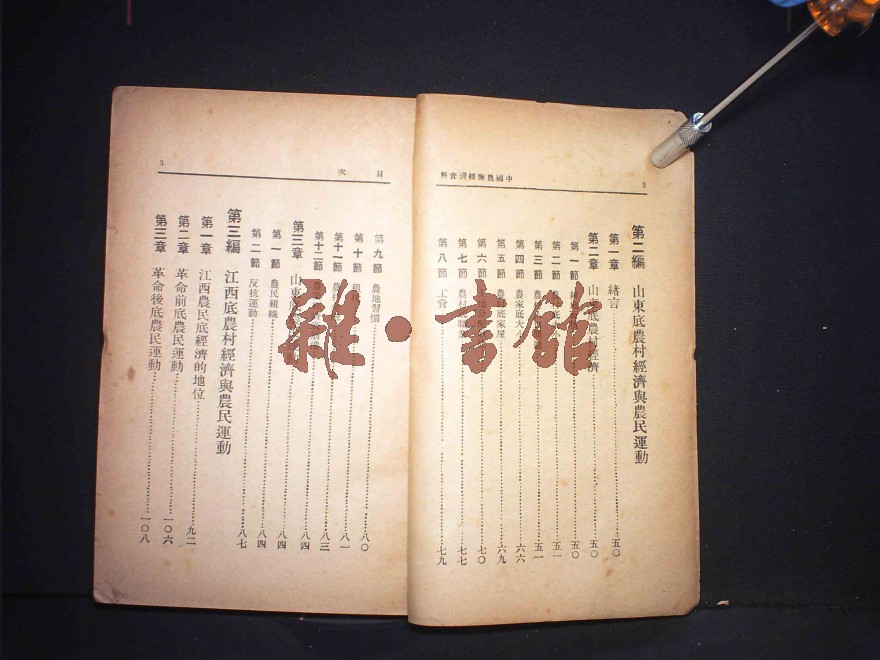 中國農無經濟資料
2
第二編 山東底農村經濟與農民運動
第一章 緒言 五〇
第二章 山東底農村經濟 五〇
第一節 五〇
第二節 五一
第三節 五一
第四節 農家底大小 六六
第五節 農村底家屋 六九
第六節 七〇
第七節 七七
第八節 工資 七九
目 次
3
第九節 農地習慣 八〇
第十節 八一
第十一節 八三
第十二節 八四
第三章 山東 八四
第一節 農民組織 八四
第二節 反抗運動 八七
第三編 江西底農村經濟與農民運動
第一章 江西農民底經濟的地位 九二
第二章 革命前底農民運動 一〇六
第三章 革命後底農民運動 一〇八
雜·書館